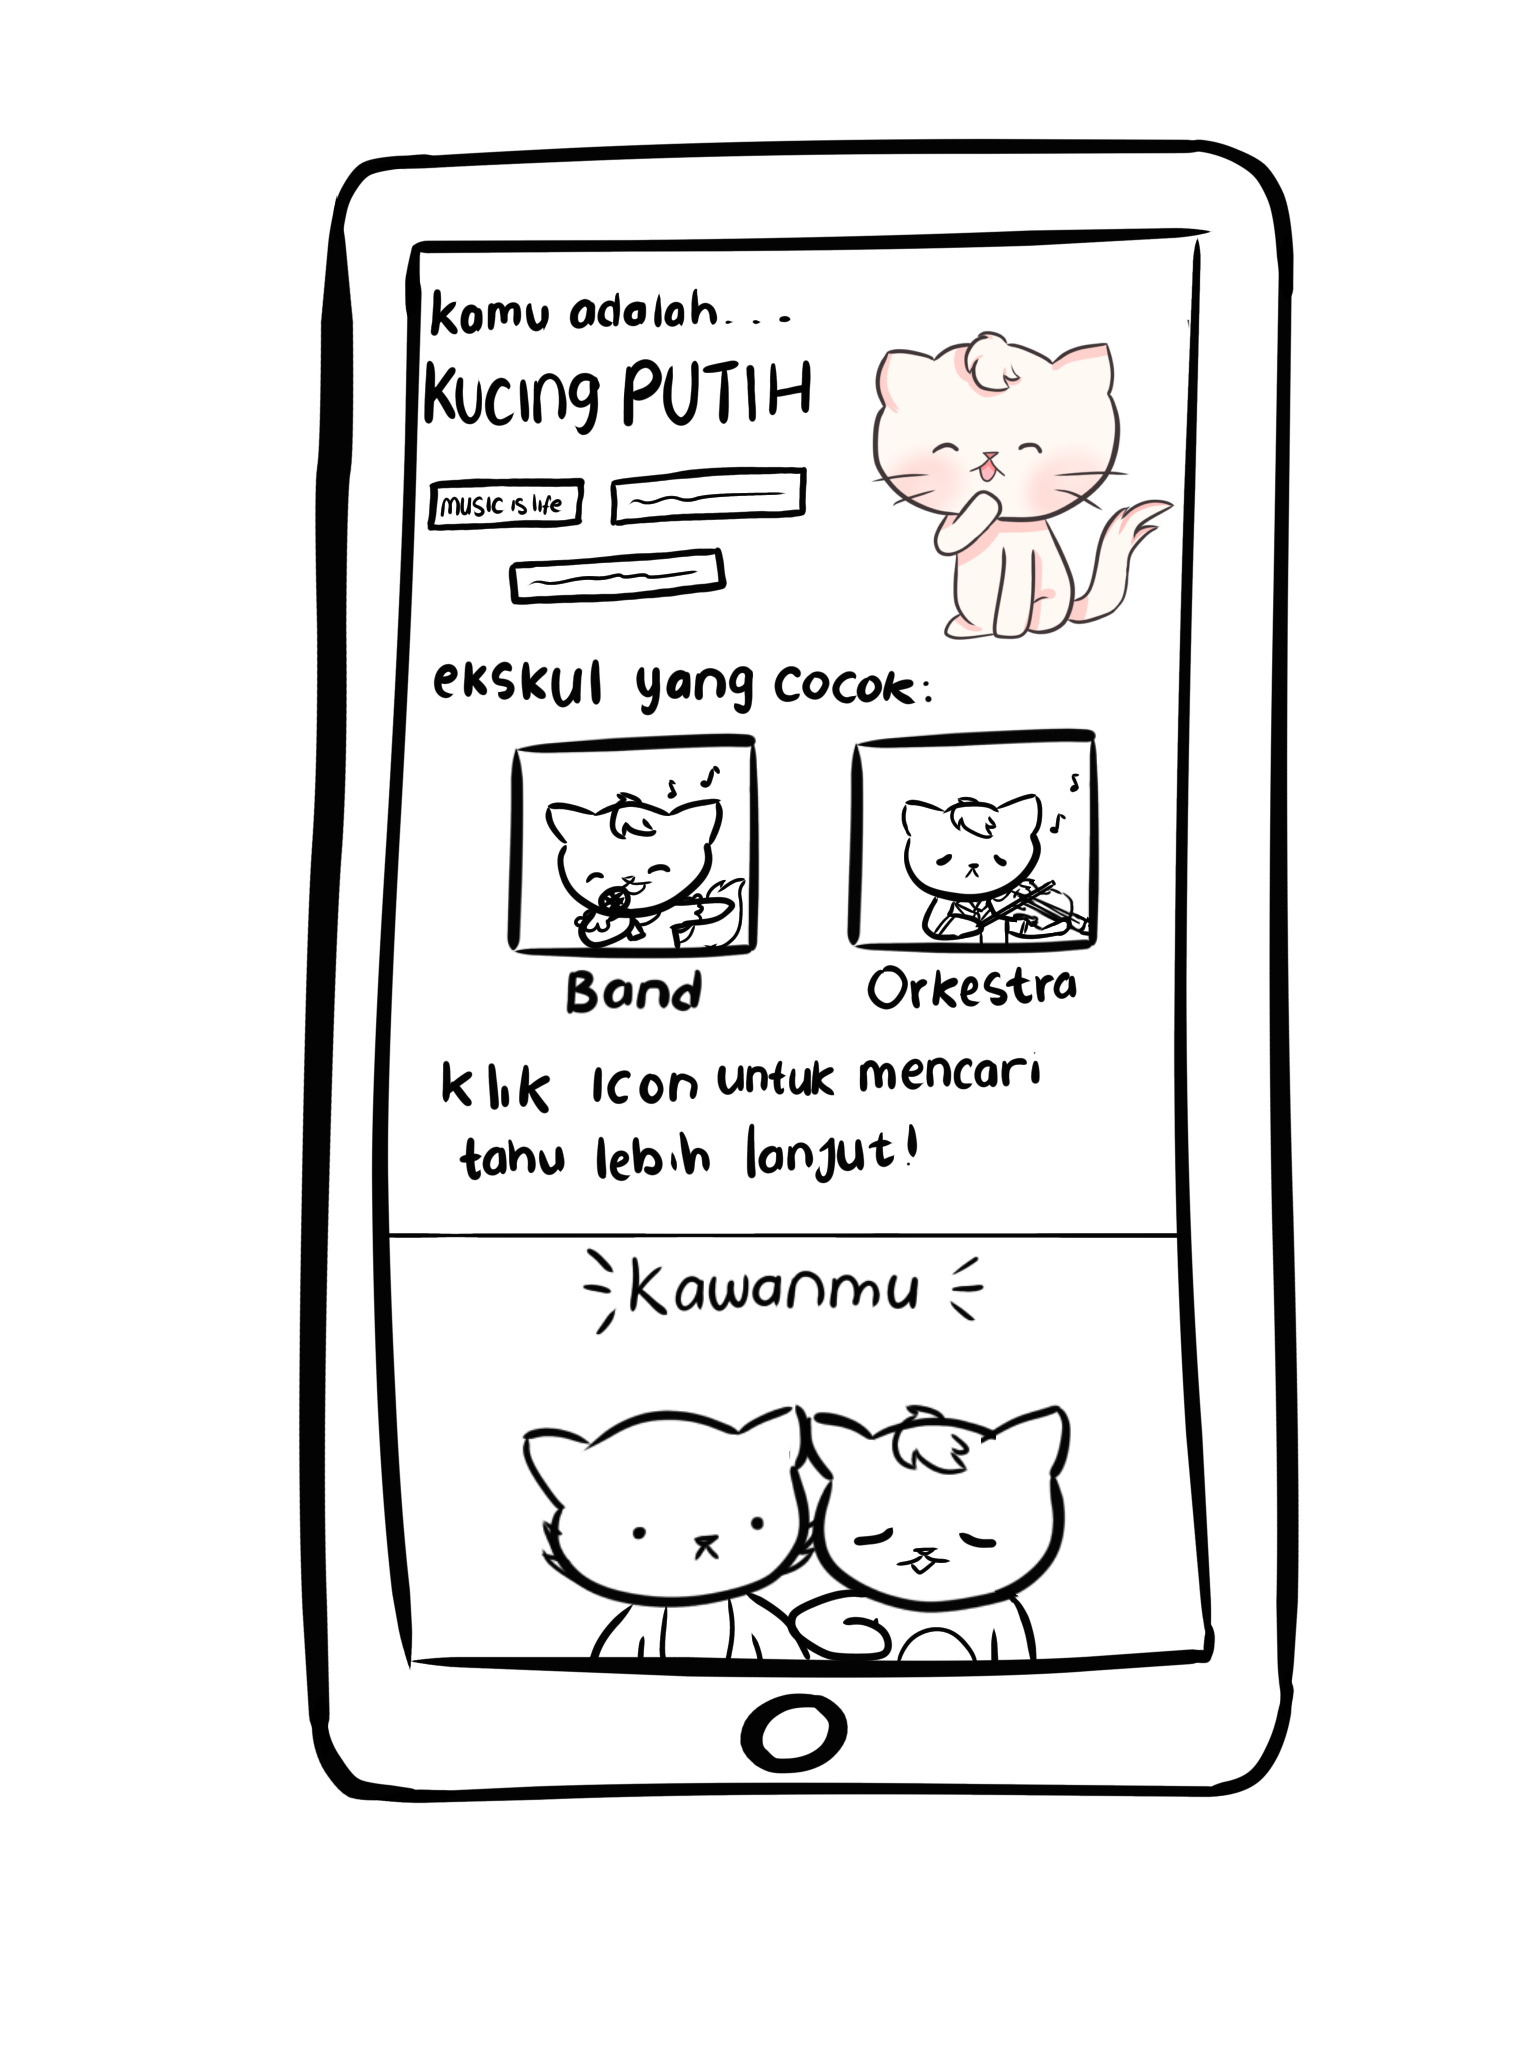 kamu adalah...
Kucing PUTIH
music is life
ekskul yang cocok:
Band
Orkestra
klik icon untuk mencari
tahu lebih lanjut!
Kawanmu